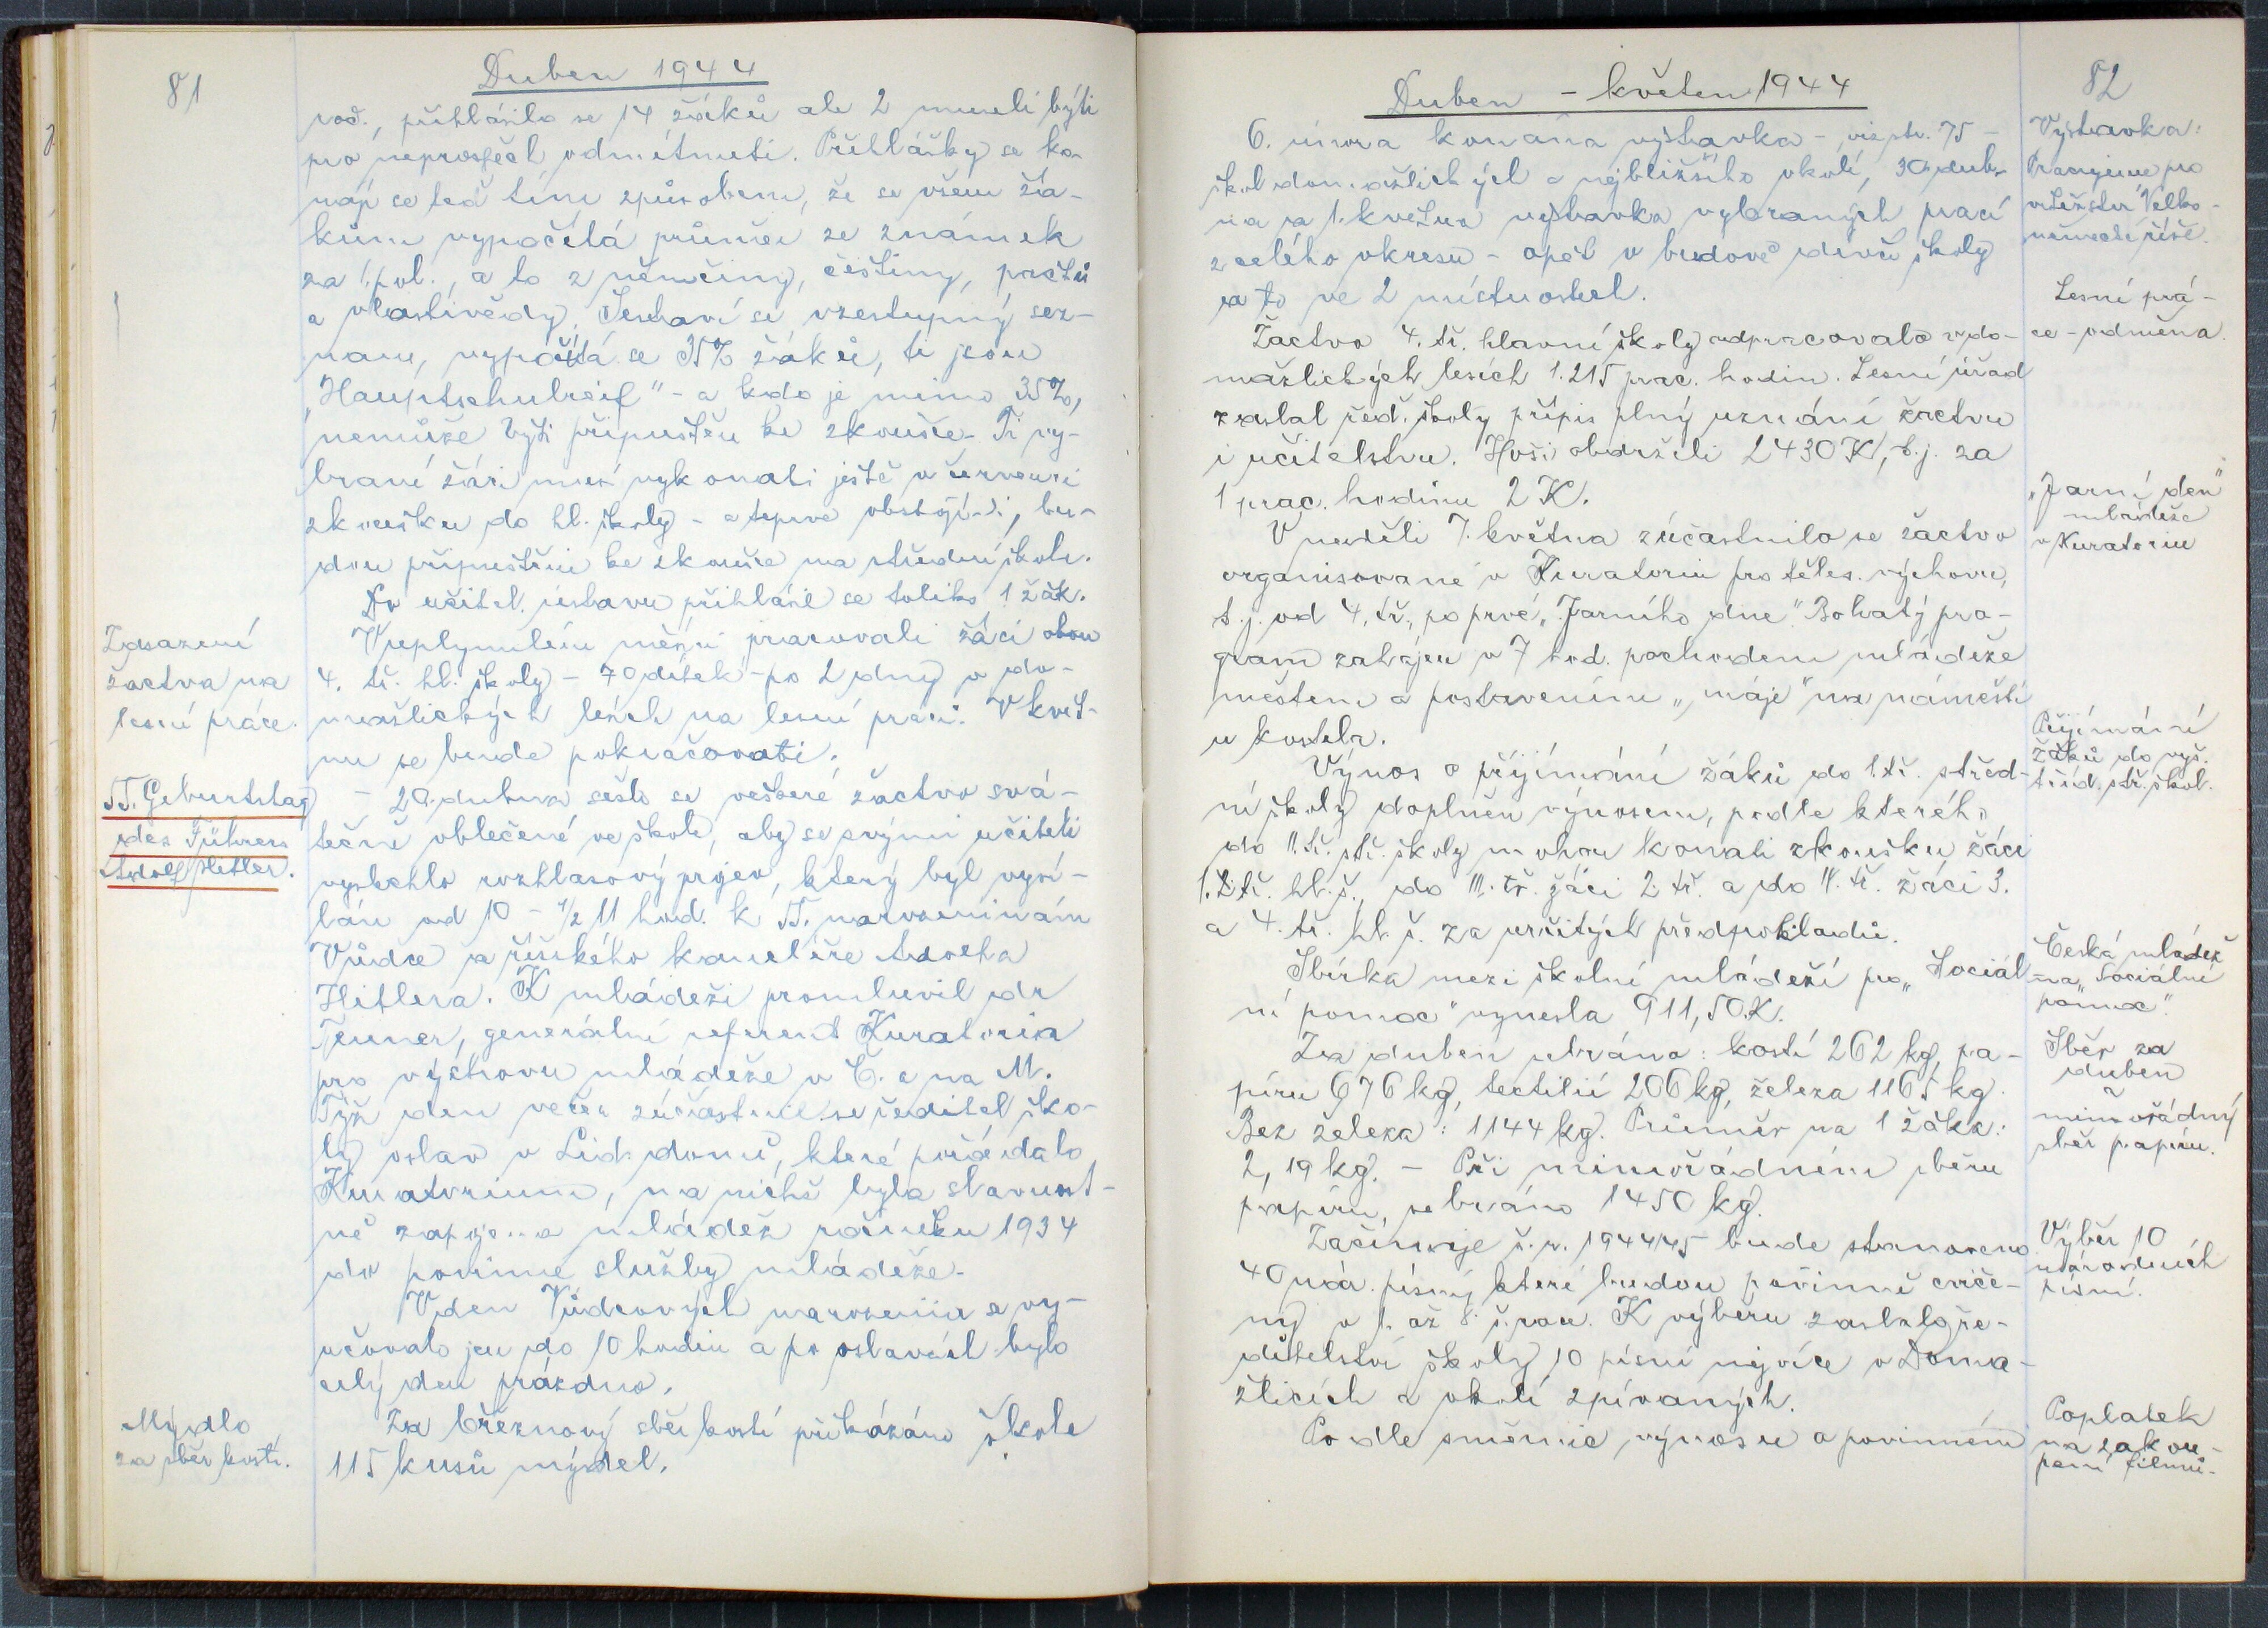 81
Duben 1944
poč., přihlásilo se 14 žáků ale 2 museli býti
pro neprospěch odmítnuti. Přihlášky se ko-
nají se teď tím způsobem, že se všem žá-
kům vypočítá průměr ze známek
za 1. pol., a to z němčiny, češtiny, počtů
a vlastivědy. Sestaví se vzestupný sez-
nam, vypočítá se 35% žáků, ti jsou
„Hauptschulreif" - a kdo je mimo 35%,
nemůže býti připuštěn ke zkoušce. Ti vy-
braní žáci musí vykonati ještě v červenci
zkoušku do hl. školy - a teprve obstojí-li, bu-
dou připuštěni ke zkoušce na střední školu.
Do učitel. ústavu přihlásil se toliko 1 žák.
Zasazení
žactva na
lesní práce.
V uplynulém měsíci pracovali žáci obou
4. tř. hl. školy - 70 dítek - po 2 dny v do-
mažlických lesích na lesní práci. V květ-
nu se bude pokračovati.
55. Geburtstag
des Führers
Adolf Hitler.
- 20. dubna sešlo se veškeré žactvo svá-
tečně oblečené ve škole, aby se svými učiteli
vyslechlo rozhlasový projev, který byl vysí-
lán od 10 - ½ 11 hod. k 55. narozeninám
Vůdce a říšského kancléře Adolfa
Hitlera. K mládeži promluvil dr
Teuner, generální referent Kuratoria
pro výchovu mládeže v Č. a na M.
Týž den večer zúčastnil se ředitel ško-
ly oslav v Lid. domě, které pořádalo
Kuratorium, na nichž byla slavnost-
ně zapojena mládež ročníku 1934
do povinné služby mládeže.
V den Vůdcových narozenin se vy-
učovalo jen do 10 hodin a po oslavách bylo
celý den prázdno.
Mýdlo
za sběr kostí.
Za březnový sběr kostí přikázáno škole
115 kusů mýdel.
Duben - květen 1944
82
6. února konána výstavka - viz str. 75 -
škol domažlických a nejbližšího okolí, 30. dub-
na a 1. května výstavka vybraných prací
z celého okresu - opět v budově dívčí školy
a to ve 2 místnostech.
Výstavka:
Pracujeme pro
vítězství Velko-
německé říše.
Žactvo 4. tř. hlavní školy odpracovalo v do-
mažlických lesích 1.215 prac. hodin. Lesní úřad
zaslal řed. školy přípis plný uznání žactvu
i učitelstvu. Hoši obdrželi 2430 K, t.j. za
1 prac. hodinu 2 K.
Lesní prá-
ce - odměna.
V neděli 7. května zúčastnilo se žactvo
organisované v Kuratoriu pro těles. výchovu,
t.j. od 4. tř., po prvé „Jarního dne". Bohatý pro-
gram zahájen v 7 hod. pochodem mládeže
městem a postavením „máje" na náměstí
u kostela.
„Jarní den"
mládeže
v Kuratoriu
Výnos o přijímání žáků do 1. tř. střed-
ní školy doplněn výnosem, podle kterého
do II. tř. stř. školy mohou konati zkoušku žáci
1. tř. hl. š., do III. tř. žáci 2. tř. a do IV. tř. žáci 3.
a 4. tř. hl. š. za určitých předpokladů.
Přijímání
žáků do vyš.
tříd. stř. škol.
Sbírka mezi školní mládeží pro „Sociál-
ní pomoc" vynesla 911,50 K.
Česká mládež
na „Sociální
pomoc".
Za duben sebráno: kostí 262 kg, pa-
píru 676 kg, textilií 206 kg, železa 1165 kg.
Bez železa: 1144 kg. Průměr na 1 žáka:
2,19 kg. - Při mimořádném sběru
papíru, sebráno 1450 kg.
Sběr za
duben
a
mimořádný
sběr papíru.
Začínaje š. r. 1944/45 bude stanoveno
40 nár. písní, které budou povinně cviče-
ny v 1. až 8. š. roce. K výběru zaslalo ře-
ditelství školy 10 písní nejvíce v Doma-
žlicích a okolí zpívaných.
Výběr 10
národních
písní.
Podle směrnic, výnosu o povinném
Poplatek
na zakou-
pení filmů.